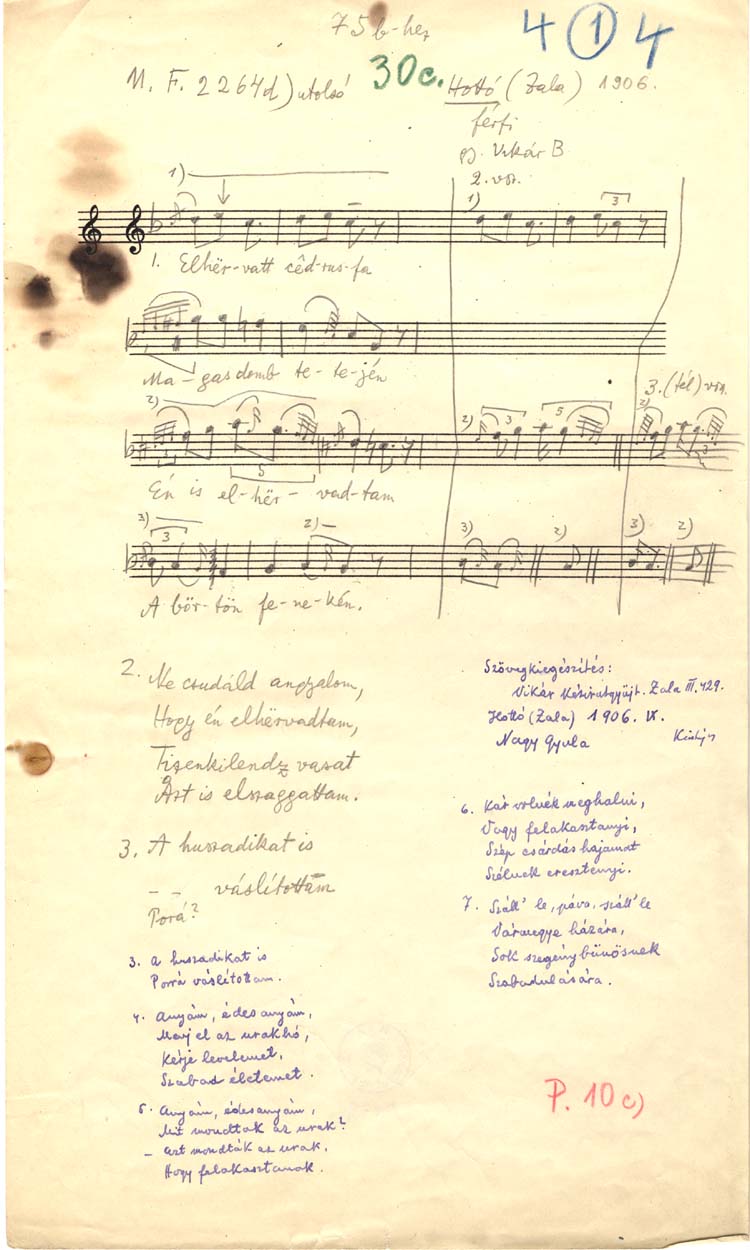 75b-hez
4 1 4
M. F. 2264d) utolsó 30c. Hottó (Zala) 1906.
férfi
gy. Vikár B
2. vsz.
1)
1)
3
1. Elhër-vatt cêd-rus-fa
Ma-gas domb te-te-jén
3. (fél) vsz.
2)
5
2) 3 5
2)
Én is el-hër-vad-tam
3) 3 2)
3) 2)
3) 2)
A bör-tön fe-ne-kén.
2. Ne csudáld angyalom,
Hogy én elhërvadtam,
Tizenkilendz vasat
Ászt is elszaggattam.
3. A huszadikat is
– – váslítottam
Porá?
3. A huszadikat is
Porrá váslítottam.
4. Anyám, édes anyám,
Menj el az urakhó,
Kérje levelemet,
Szabad életemet.
5. Anyám, édesanyám,
Mit mondtak az urak?
– Azt mondták az urak,
Hogy felakasztanak.
Szövegkiegészítés:
Vikár Kéziratgyüjt. Zala III. 429.
Hottó (Zala) 1906. IX.
Nagy Gyula
6. Kár volnék meghalni,
Vagy felakasztanyi,
Szép csárdás hajamat
Szélnek eresztenyi.
7. Száll' le, páva, száll' le
Vármegye házára,
Sok szegény bünösnek
Szabadulására.
P. 10c)